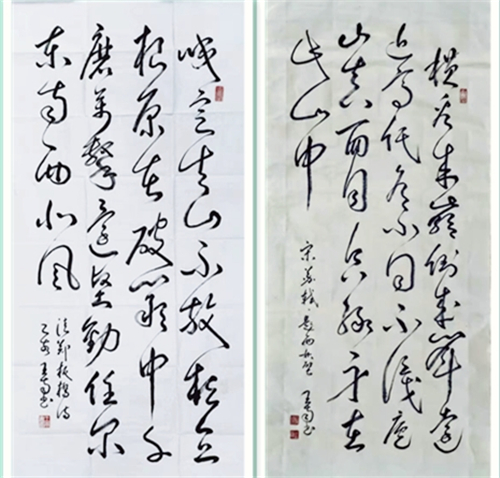 咬定青山不放松立
根原在破岩中千
磨萬擊還坚劲任尔
东南西北风
郑板桥诗
横看成嶺侧成峰遠
近高低各不同不識庐
山真面目只缘身在
此山中
宋苏轼题西林壁